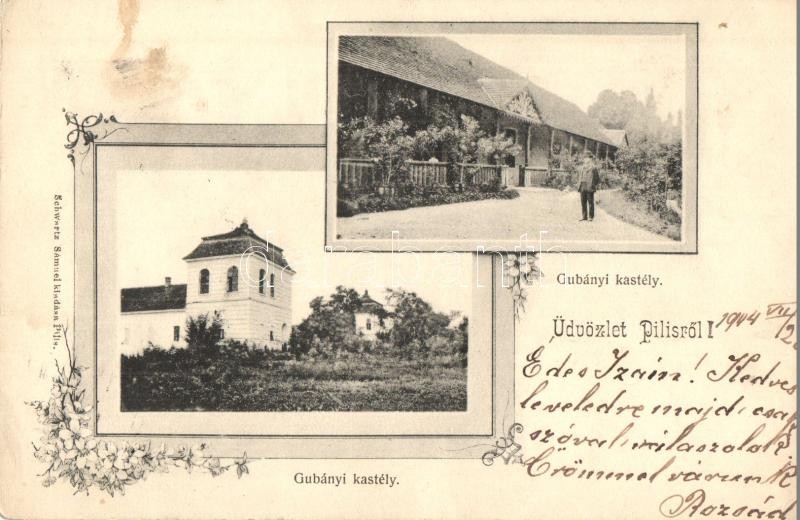 Gubányi kastély.
Schwartz Sámuel kiadása Pilis.
Üdvözlet Pilisről!
1904 VII/2
Édes Izám! Kedves
leveledre majd csak
szóval válaszolok
Örömmel várunk
Rozsád
Gubányi kastély.
darabanth